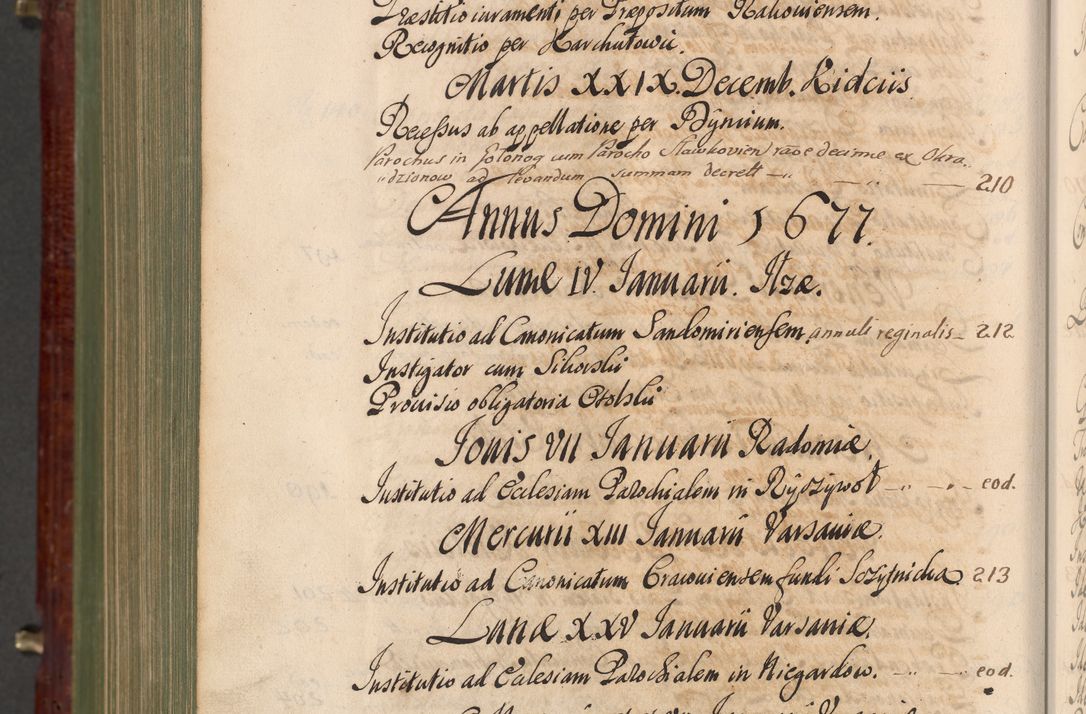 Præstitio iuramenti per Præpositum Rakouiensem.
Recognitio per Karchutowic.
Martis XXIX. Decemb. Kidciis
Recessus ab appellatione per Rdynium.
Parochus in Gołonog cum Parocho Sławkovien) raoe decime ex Okra-
„dzionow ad levandum summam decrett — „ — „ — 210
Annus Domini 1677.
Lunæ IV. Januarii. Ilzæ.
Institutio ad Canonicatum Sandomiriensem annuli reginalis - 212
Instigator cum Sikorski
Prouisio obligatoria Otolski
Jouis VII Januarii Radomiæ.
Institutio ad Ecclesiam Parochialem in Ryszywoł — „ — „ — eod.
Mercurii XIII Januarii Varsaviæ.
Institutio ad Canonicatum Cracouiensem fundi Sczytnicka 213
Lunæ XXV Januarii Varsaviæ.
Institutio ad Ecclesiam Parochialem in Niegardow. — „ — eod.